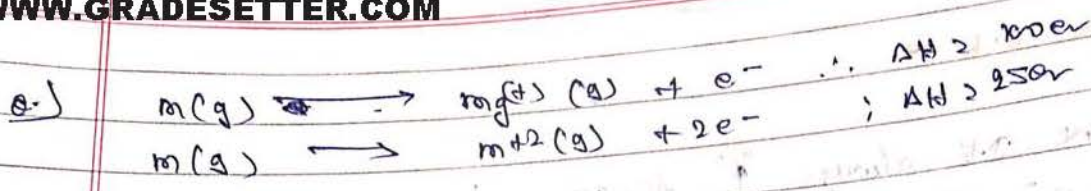 WWW.GRADESETTER.COM
Q.) m(g) → mg(+) (g) + e- ∴ ΔH = 100ev
m(g) → m+2 (g) + 2e- ; ΔH = 250ev